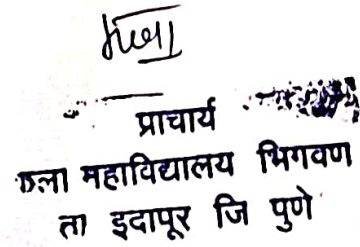 प्राचार्य
कला महाविद्यालय भिगवण
ता इदापूर जि पुणे